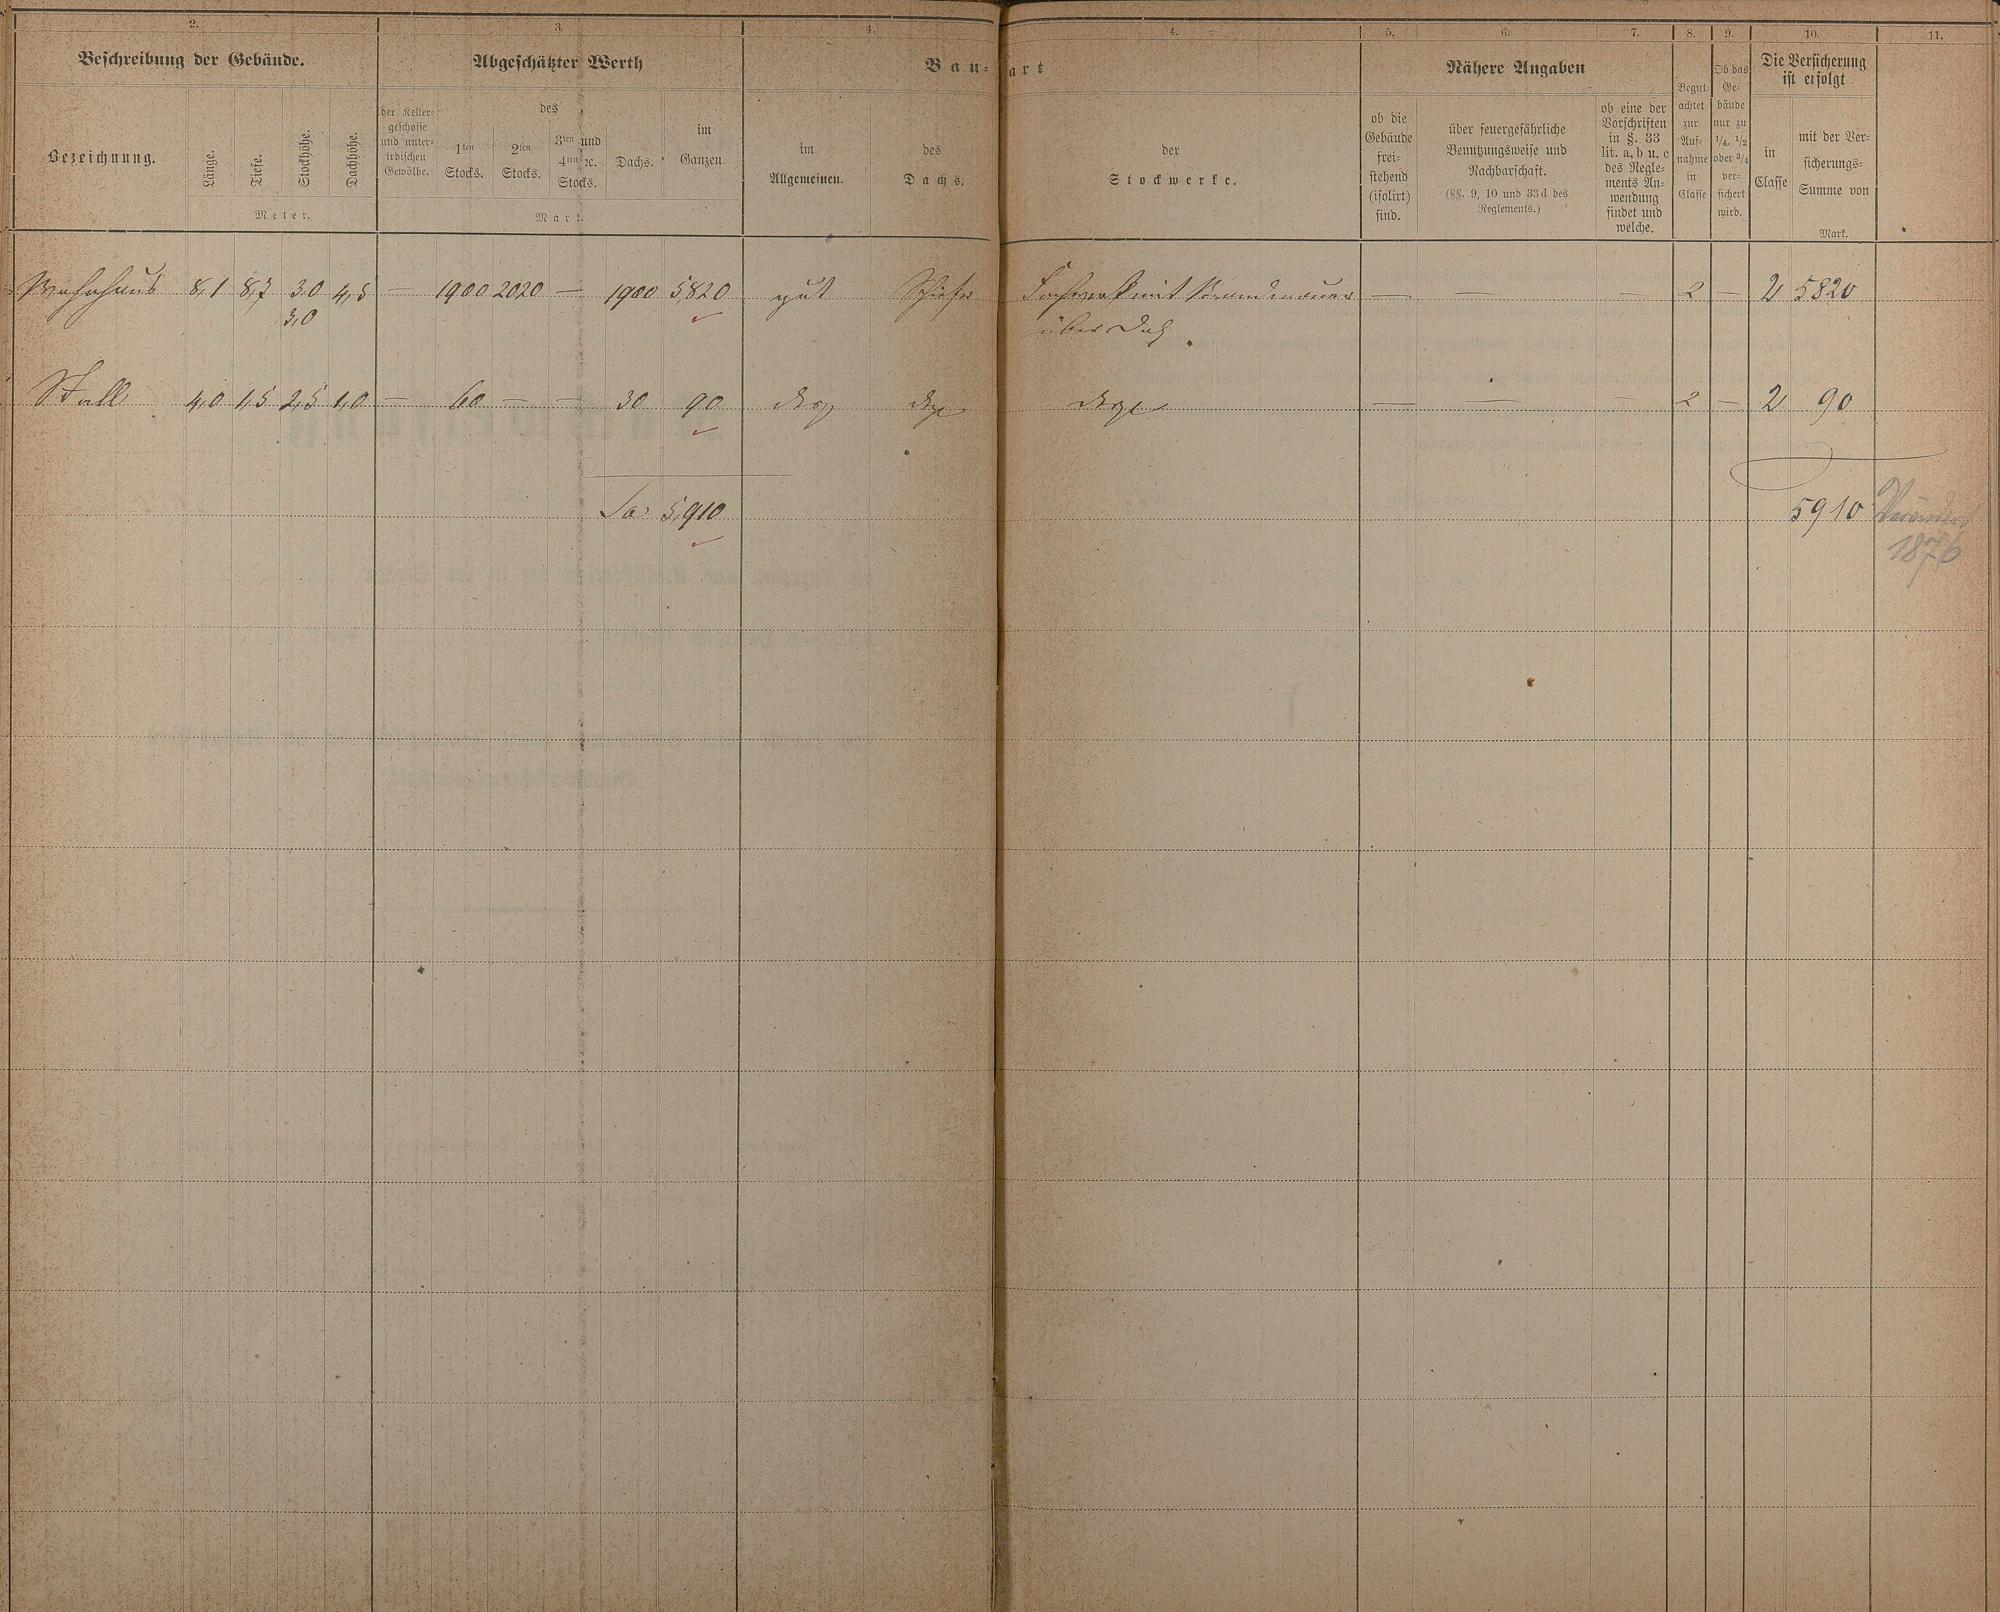 2. 3. 4. 4. 5. 6. 7. 8. 9. 10. 11.
Beschreibung der Gebäude.
Bezeichnung.
Länge.
Tiefe.
Stockhöhe.
Dachhöhe.
Meter.
Abgeschätzter Werth
der Keller-
geschosse
und unter-
irdischen
Gewölbe.
des
1ten
Stocks.
2ten
Stocks.
3ten und
4ten ꝛc.
Stocks.
Dachs.
im
Ganzen
Mark.
Bau-art
im
Allgemeinen.
des
Dachs.
der
Stockwerke.
Nähere Angaben
ob die
Gebäude
frei-
stehend
(isolirt)
sind.
über feuergefährliche
Benutzungsweise und
Nachbarschaft.
(§§. 9, 10 und 33d des
Reglements.)
ob eine der
Vorschriften
in §. 33
lit. a, b u. c
des Regle-
ments An-
wendung
findet und
welche.
Begut-
achtet
zur
Auf-
nahme
in
Classe
Ob das
Ge-
bäude
nur zu
1/4, 1/2
oder 3/4
ver-
sichert
wird.
Die Versicherung
ist erfolgt
in
Classe
mit der Ver-
sicherungs-
Summe von
Mark.
Wohnhaus 8,1 8,7 3,0 4,5 — 1900 2020 — 1900 5,820 gut Schiefer Fachwerk mit Brandmauer — — — 2 — 2 5820
3,0 über Dach
Stall 4,0 1,5 2,5 1,0 — 60 — — 30 90 desgl desgl desgl — — — 2 — 2 90
Sa 5,910 5910 Verändert
1876